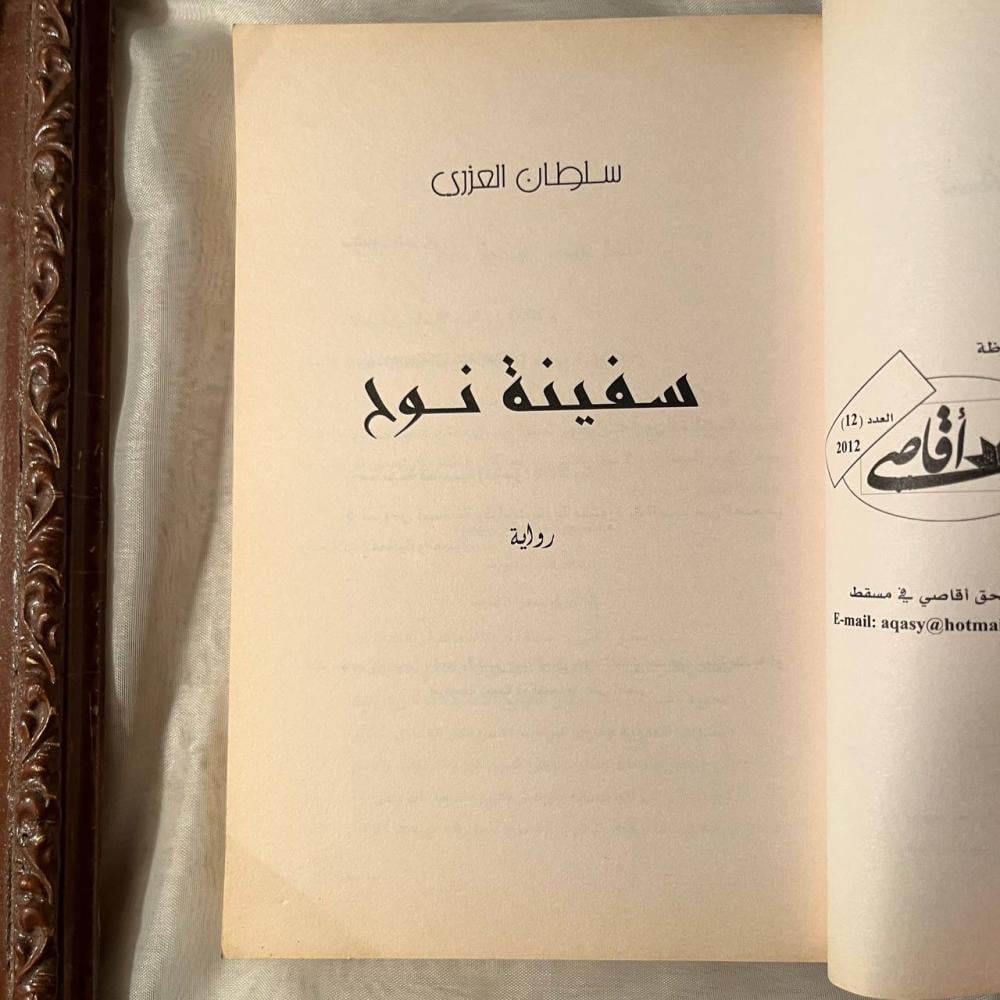 سلطان العزري
سفينة نوح
رواية
العدد (12)
2012
أقاصي
أقاصي في مسقط
E-mail: aqasy@hotmai